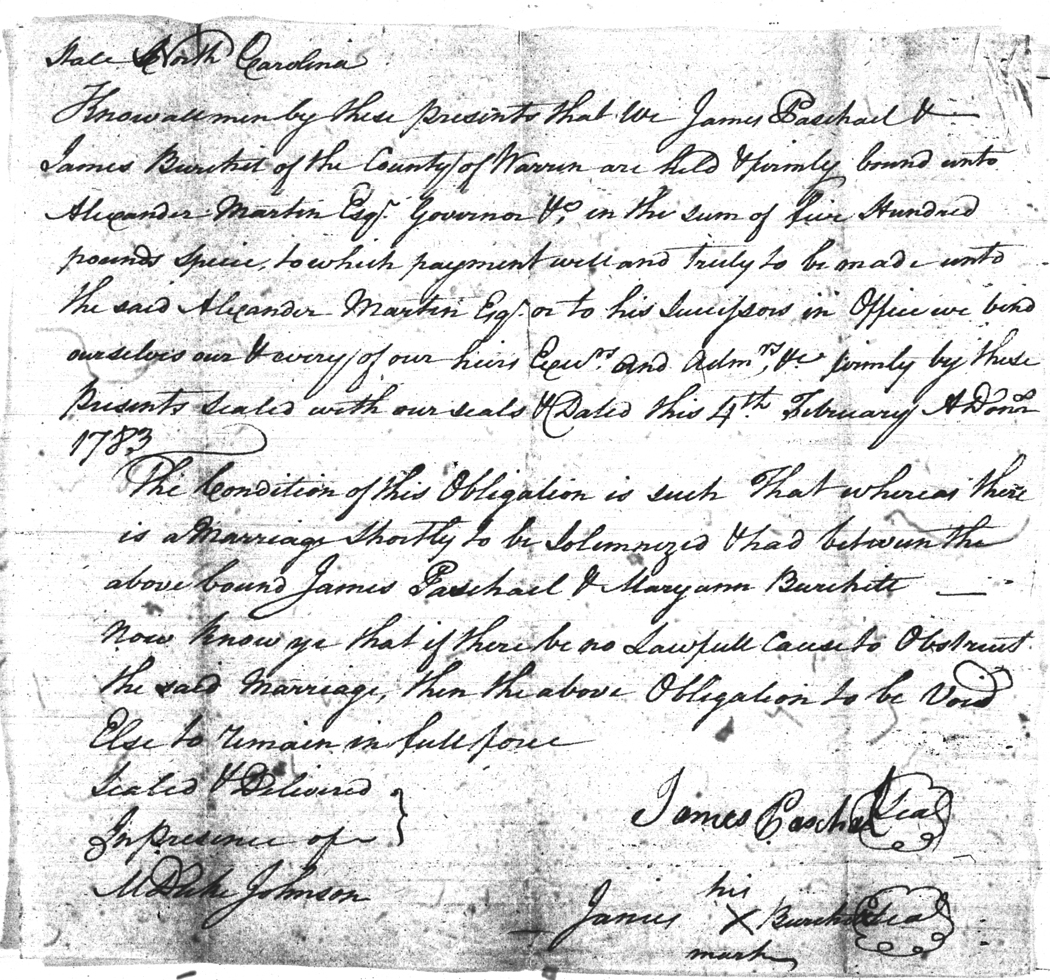 State North Carolina
Know all men by these presents that We James Paschael &
James Burchet of the County of Warren are held & firmly bound unto
Alexander Martin Esqr. Governor &c, in the sum of five Hundred
pounds specie, to which payment well and truly to be made unto
the said Alexander Martin Esqr. or to his Successors in Office we bind
ourselves our & every of our heirs Exeurs. and Admrs, &c firmly by these
Presents sealed with our seals & Dated this 4th February A Domo
1783
The Condition of this Obligation is such That whereas there
is a Marriage Shortly to be Solemnized & had between the
above bound James Paschael & Maryann Burchett
Now know ye that if there be no Lawfull Cause to Obstruct
the said Marriage, then the above Obligation to be Void
Else to remain in full force
Sealed & Delivered
In presence of
James Paschal Seal
M Duke Johnson
his
James X Burchet Seal
mark